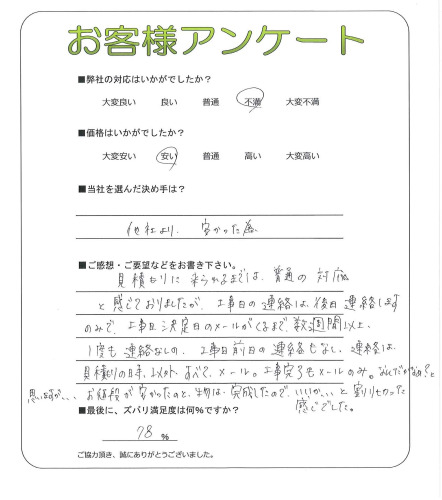 お客様アンケート
■弊社の対応はいかがでしたか？
大変良い 良い 普通 不満 大変不満
■価格はいかがでしたか？
大変安い 安い 普通 高い 大変高い
■当社を選んだ決め手は？
他社より、安かった為
■ご感想・ご要望などをお書き下さい。
見積もりに来られるまでは、普通の対応
と感じておりましたが、工事日の連絡は、後日連絡します
のみで、工事日決定日のメールがくるまで、数週間以上、
1度も連絡なしの、工事日前日の連絡もなし、連絡は、
見積もりの日時、以外、すべて、メール。工事完了もメールのみ。なんだかなぁ？と
思いますが、、、お値段が安かったのと、物は、完成したので、いいか、、と割りきった
感じでした。
■最後に、ズバリ満足度は何％ですか？
78 %
ご協力頂き、誠にありがとうございました。